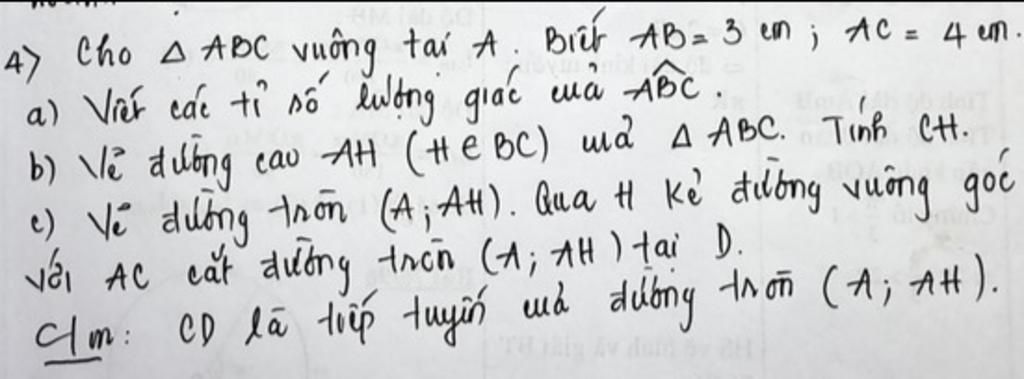 4) Cho △ ABC vuông tại A. Biết AB = 3 cm ; AC = 4 cm.
a) Viết các tỉ số lượng giác của \widehat{ABC}.
b) Vẽ đường cao AH (H ∈ BC) của △ ABC. Tính CH.
c) Vẽ đường tròn (A; AH). Qua H kẻ đường vuông góc
với AC cắt đường tròn (A; AH) tại D.
Cm: CD là tiếp tuyến của đường tròn (A; AH).